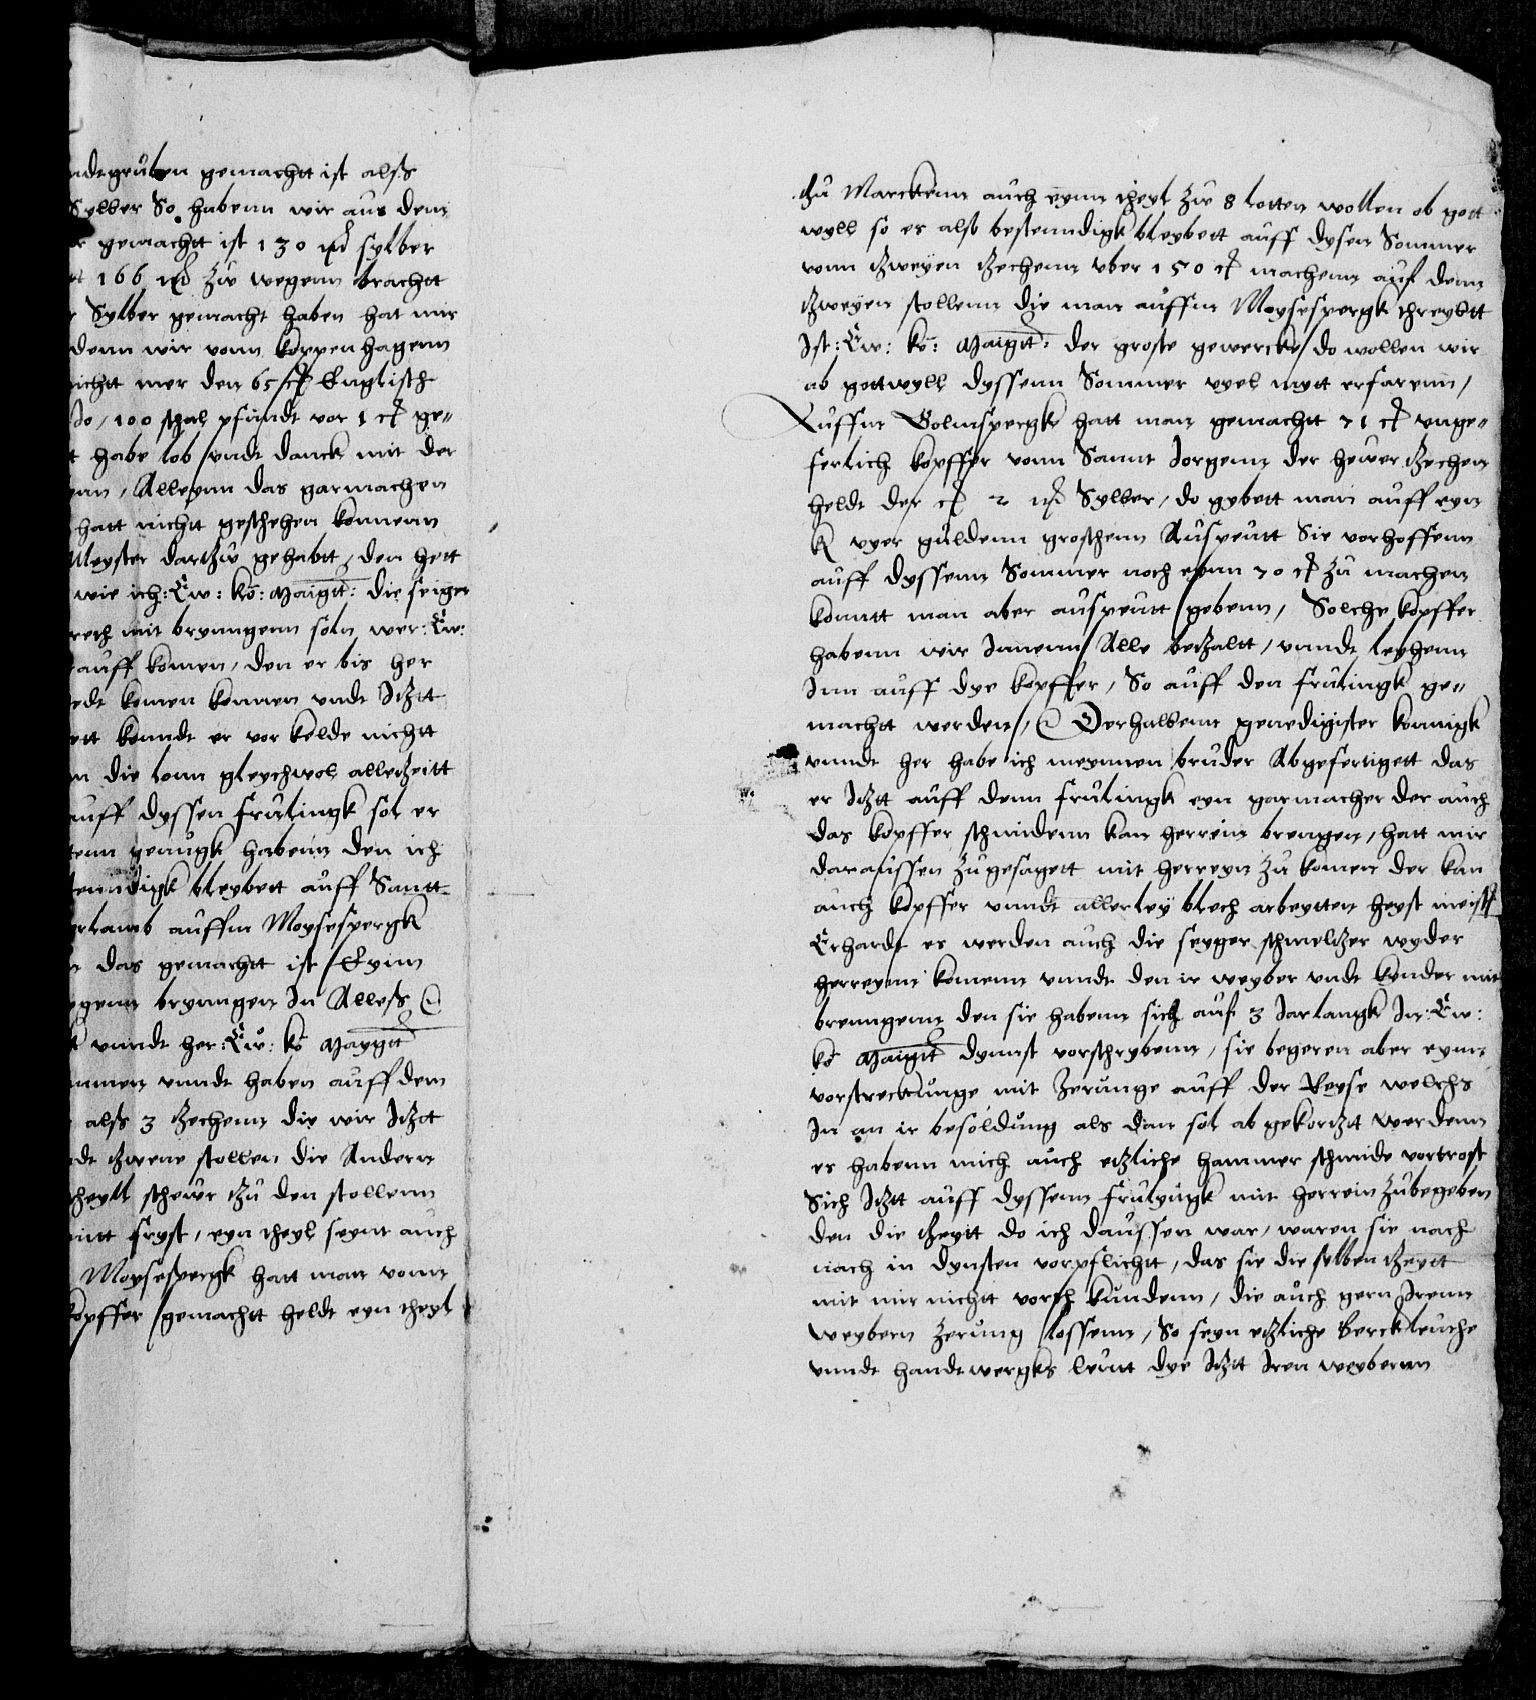 ndegruben gemachtt ist alss
Sylber So habenn wir aus dem
gemachtt ist 130 sylber
166 zu wegenn brachtt
Sylber gemacht haben hat mir
denn wir vonn koppenhagenn
ichtt mer den 65 Englisch
do / 100 schal pfundt vor 1 ge„
habe lob vndt danck mit der
Alleynn das garmachen
hatt nichtt geschehen konnenn
Meyster dartzu gehabtt, den hett
wie ich: Ew: ko: Maigtt: die seiger
mit bryngenn soln wer: Ew:
auff komen, den er bis her
komen konnen vndt Itztt
kondt er vor kelde nichtt
die lonn gleychwol alletzeitt
auff dyssen frulingk sol er
genugk habenn den ich
bleybett auff Santt
auffm Moysespergk
das gemachtt ist Eynn
bryngen In Alless
vnndt her: Ew: ko Maygtt
vnndt haben auff dem
alss 3 zechenn die wir Itztt
tzwene stollen die Andern
schewr tzu den stollenn
fryst, eyn theyl seynt auch
Moysespergk hatt man vonn
kopffer gemachtt heldt eyn theyl
tzu Marckenn auch eynn theyl zw 8 lotten wollen ob gott
wyll so es also bestenndigk bleybett auff dysen Sommer
vonn tzweyen zechenn vber 150 machenn auf denn
tzweyen stollenn die man auffm Moysespergk threybtt
Ist: Ew: ko: Maigtt: der groste gewercke / do wollen wir
ab gottwyll dyssenn Sommer vyel mytt erfarenn,
Auffm Golmspergk hatt man gemachtt 21 vnge„
ferlich kopffer vonn Sannt Jorgenn der hewer zechen
heldt der 2 Sylber, do gybett man auff eyn
k vyer guldenn groschenn Auspeutt Sie vorhoffenn
auff dyssenn Sommer noch eynn 20 zu machen
komtt man aber auspeutt gebenn, Solche kopffer
habenn wir Innenn Alle betzaltt, vnndt leyhenn
Inn auff dye kopffer, So auff den frulingk ge„
machtt werden, Derhalbenn genedigister konnigk
vnndt her habe ich meynnen bruder Abgefertigett das
er Itztt auff denn frulingk eyn garmacher der auch
das kopffer schmidenn kan herrein brengen, hatt mir
daraussen zugesagett mit herreyn zu komen der kan
auch kopffer vnndt allerley blech arbeytten heyst meist
Erhardt es werden auch die seyger schmeltzer wyder
herreynn komenn vnndt den ir weyber vndt kinder mit
brenngenn den sie habenn sich auf 3 Jarlangk In: Ew:
ko Maigtt dynnst vorschrybenn, sie begeren aber eynn
vorstreckunge mit zerunge auff der Reyse welchs
In an ir besoldung als dan sol abgekortztt werdenn
es habenn mich auch etzliche hammer schmide vortrost
Sich Itztt auff dyssenn frulyngk mit herrein zubegeben
den die tzeytt do ich daussen war, waren sie nach
nach in dynsten vorpflichtt, das sie die selben tzeytt
mit mir nichtt kundenn, die auch gern Irenn
weybern zerung lossenn, So seyn etzliche Berckleuthe
vnndt handtwergks leutt dye Itztt Iren weybernn